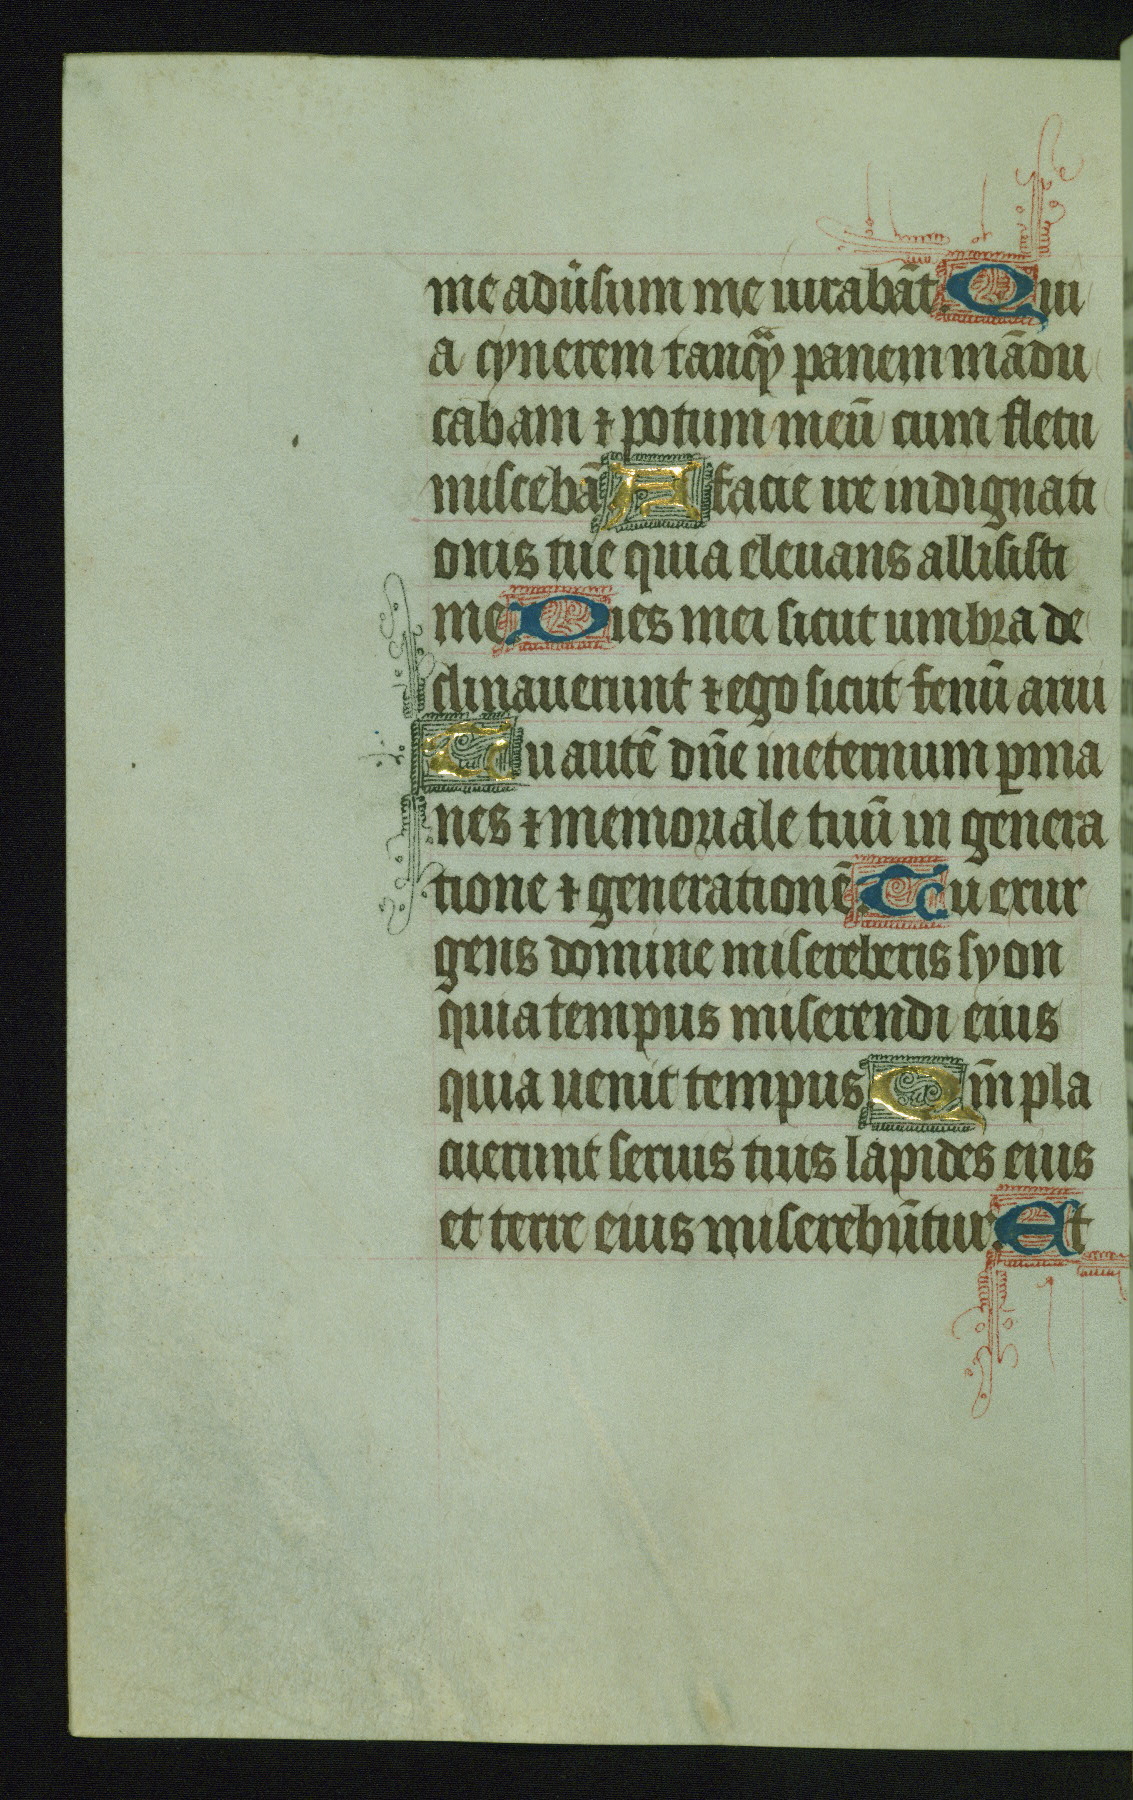 me adūsum me iurabāt. Qui
a cynerem tanqͣꝫ panem mādu
cabam ⁊ potum meū cum fletu
miscebā A facie ire indignati
onis tue quia eleuans allisisti
me Dies mei sicut umbra de
clinauerunt ⁊ ego sicut fenū arui
Tu autē dn̄e in eternum ꝑma
nes ⁊ memoriale tuū in genera
tione ⁊ generationē Tu exur
gens domine misereberis syon
quia tempus miserendi eius
quia uenit tempus Qm̄ pla
cuerunt seruis tuis lapides eius
et terre eius miserebūtur. Et